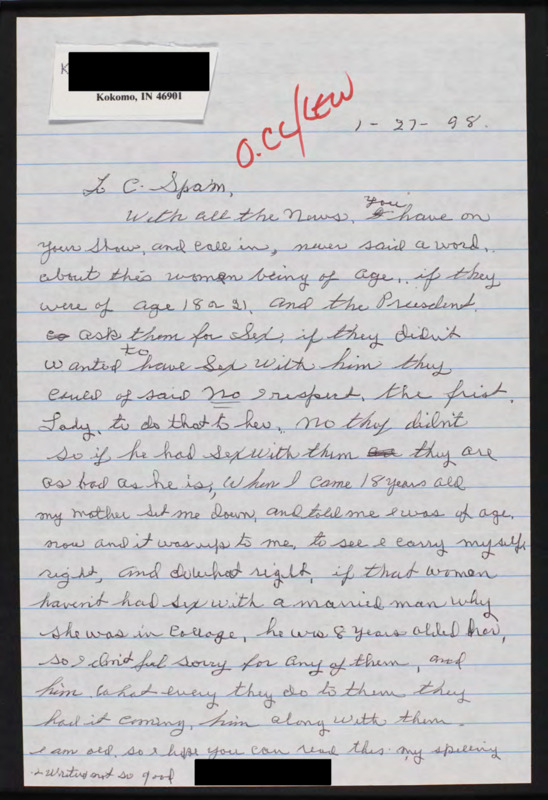 K
Kokomo, IN 46901
O.CC/LEW
1-27-98.
C. Spam,
With all the News, you have on
your show, and call in, never said a word,
about this women being of age, if they
were of age 18 or 21. and the President.
ask them for sex, if they didn't
wanted to have sex with him they
could of said No & respect, the frist.
Lady, to do that to her, no they didn't
so if he had sex with them they are
as bad as he is, when I came 18 years old
my mother set me down, and told me I was of age.
now and it was up to me, to see I carry myself
right, and do what right, if that women
haven't had sex with a married man why
she was in collage, he was 8 years olded
so I don't feel sorry for any of them, and
him what every they do to them they
had it coming, him along with them.
I am old, so I hope you can read this my spilling
& writing not so good